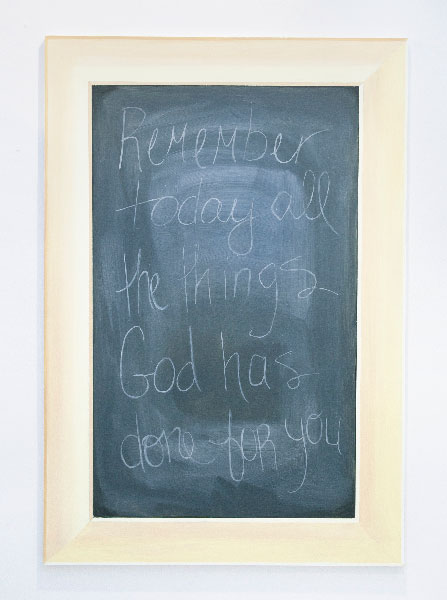 Remember
today all
the things
God has
done for you